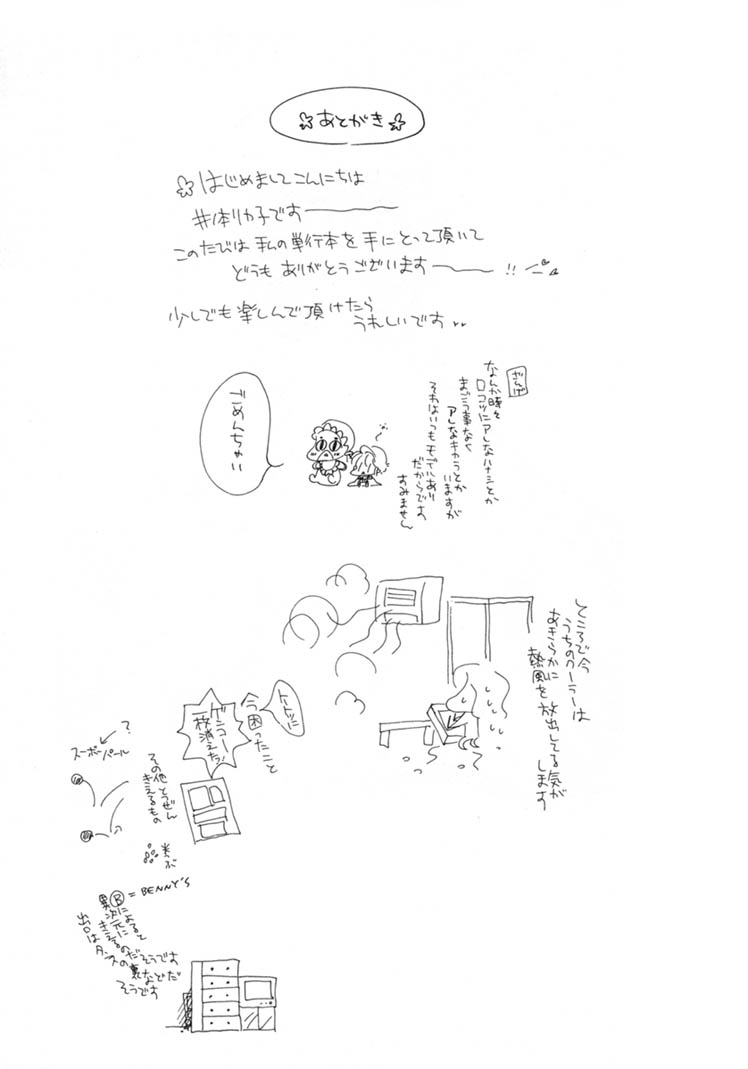 ☆あとがき☆
☆はじめましてこんにちは
井本リカ子です〜
このたびは私の単行本を手にとって頂いて
どうもありがとうございます〜!!
少しでも楽しんで頂けたら
うれしいです
ざんげ
なんか時々
ロコツにアレなハナシとか
まごう事なく
アレなキャラとか
いますが
それはいつもモデルあり
だからです
すみません
ごめんちゃい
ところで今
うちのクーラーは
あきらかに
熱風を放出してる気が
します
トートツに
今困ったこと
ゲンコー
一枚消えたッ
その他とうぜん
きえるもの
?
スーパーボール
米つぶ
Ⓑ=BENNY'S
異次元に
きえるのだそうです
出口は
タンスの裏などだ
そうです